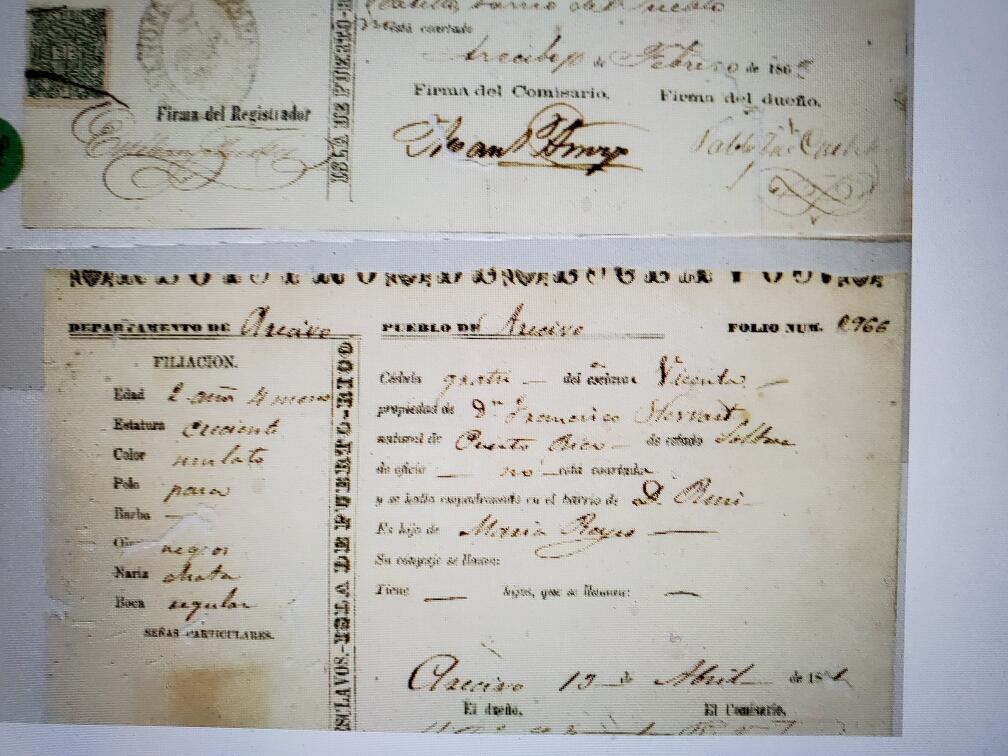 barrio del
está coartado
Arecibo de Febrero de 186
Firma del Comisario. Firma del dueño.
Firma del Registrador
ISLA DE PUERTO-R
DEPARTAMENTO DE Arecivo PUEBLO DE Arecivo FOLIO NUM. 2966
FILIACION.
Edad 2 año 4 meses
Estatura creciente
Color mulato
Pelo pasa
Barba —
Ojos negros
Nariz chata
Boca regular
SEÑAS PARTICULARES.
ESCLAVOS.-ISLA DE PUERTO-RICO
Cédula gratis — del esclavo Vicenta —
propiedad de Dn. Francisco
natural de Puerto Rico — de estado Soltera
de oficio — no está coartada
y se halla empadronado en el barrio de D. —
Es hijo de Maria Reyes —
Su cónyuje se llama:
Tiene — hijos, que se llaman: —
Arecivo 13 de Abril de 18
El dueño. El Comisario.